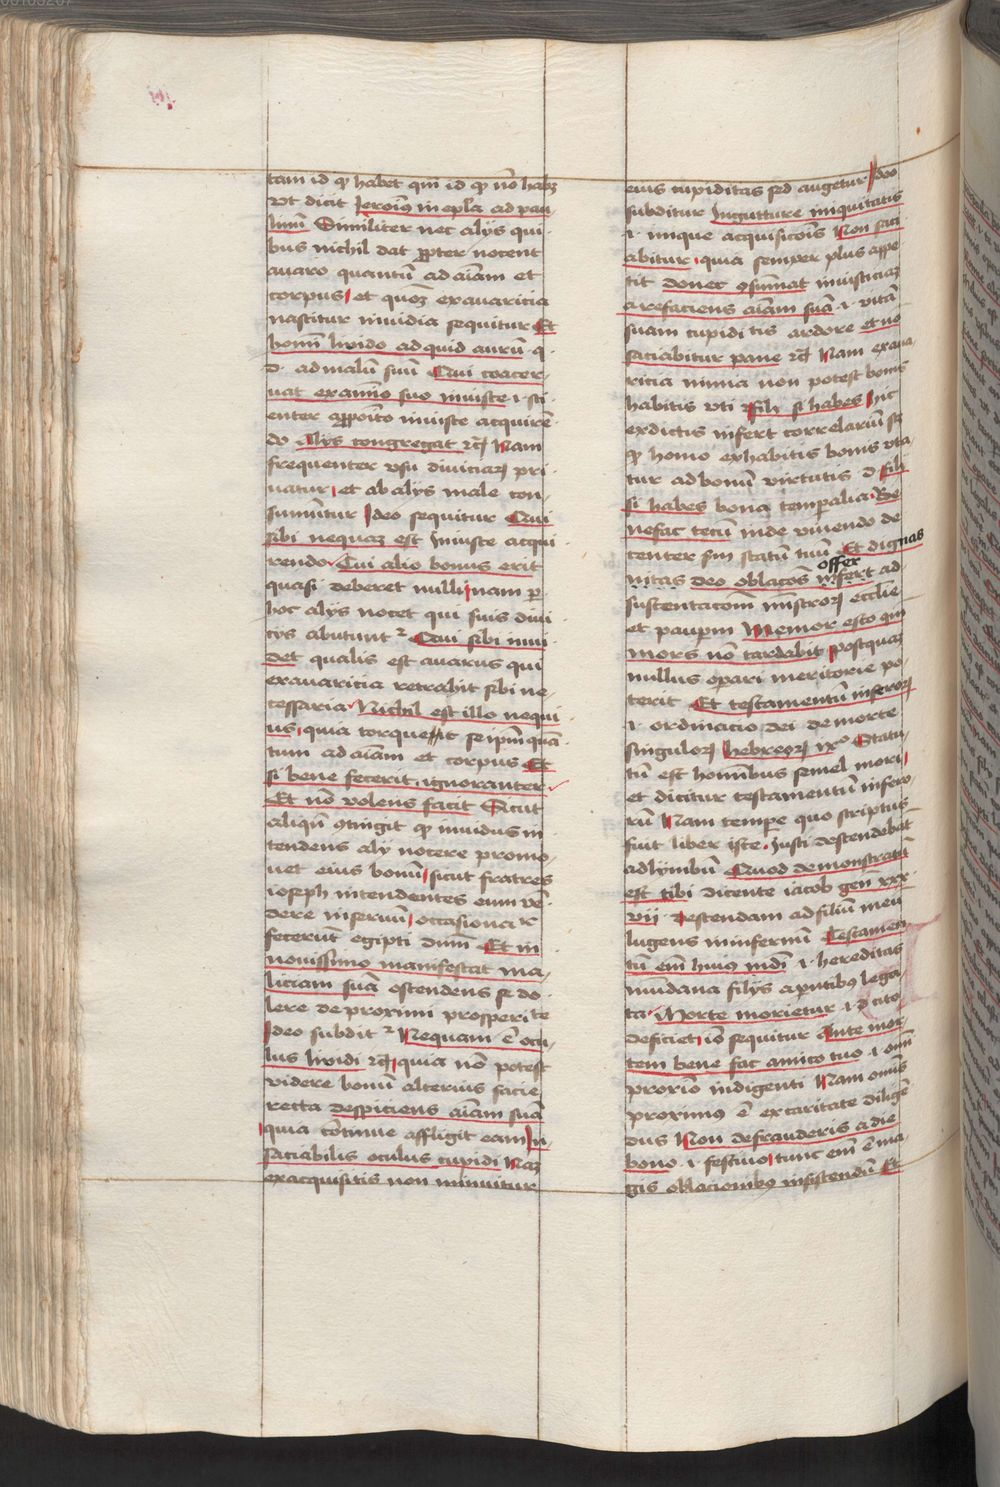 tam id qͥ habet qm̄ id qͥ nō habꝫ
vt dicit Jeroīꝰ in epl̄a ad pau
linū Similiter nec alijs qui
bus nichil dat ꝓpter nocent
auaro quantū ad aīam et
corpus et quoꝫ ex auaricia
nascitur inuidia sequitur Et
homī liuido ad quid aurū · q ·
d · ad malū suū Qui coacer
uat ex aīmo suo iniuste · i · sci
enter ꝓposito iniuste acquirē
do Alijs congregat ⁊cꝫ Nam
frequenter vsu diuiciaꝝ pri
uatur et ab alijs male con
sumūtur Ideo sequitur Qui
sibi nequaꝫ est Iniuste acqui
rendo Cui alio bonus erit
quasi deberet nulli nam ꝑ
hoc alijs nocet qui suis diui
cijs abutunt² Qui sibi inui
det qualis est auarus qui
ex auaricia retrahit sibi ne
cessaria Nichil est illo nequi
us quia torquet se ip̄m quā
tum ad aīam et corpus Et
si bene fecerit ignoranter
Et nō volens facit Sicut
aliqn̄ ꝯtingit qͥ inuidus in
tendens alij nocere promo
uet eius bonū sicut fratres
ioseph intendentes eum vē
dere in seruū occasionait̾
fecerūt egipti dūm Et in
nouissimo manifestat ma
liciam suā ostendens se do
lere de proximi prosperite
Ideo subdit² Nequam ē ocu
lus liuidi ⁊cꝫ quia nō potest
videre bonū alterius facie
recta despiciens aīam suā
quia cōtinue affligit eam In
saciabilis oculus cupidi Naꝫ
ex acquisitis non minuitur
eius cupiditas sed augetur Ideo
subditur In gutture iniquitatis
· i · inique acquisicōis Non saci
abitur · quia semper plus appe
tit donec ꝯsūmat iniusticiaꝫ
arefaciens aīam suā · i · vitā
suam cupiditis ardore et nō
saciabitur pane ⁊cꝫ Nam ex aua
ricia nimia non potest bonis
habitis vti Fili si habes Hic
ex dictis infert correlariū sꝫ
qͥ homo ex habitis bonis vta
tur ad bonū virtutis d · fili
si habes bona temporalia · Be
nefac tecū inde viuendo de
center sm̄ statū tuū Et dignas
offer
nitas deo oblacōes infert ad
sustentacom̄ mīstroꝝ eccl̄ie
et paupꝫ Memor esto qm̄
mors nō tardabit postquaꝫ
nullus oꝑari meritorie po
terit Et testamentū inferoꝝ
· i · ordinacio dei de morte
singuloꝝ Hebreoꝝ ixº Statu
tū est hominibus semel mori
et dicitur testamentū infero
rū Nam tempore quo scriptus
fuit liber iste · Justi descendebāt
ad lymbū Quod demonstratū
est tibi dicente iacob gen̄ xxx
vij · descendam ad filiū meū
lugens in infernū Testamen
tū em̄ huiꝰ mūdi · i · hereditas
mundana filijs a parentibꝰ lega
ta · Morte morietur · i · cito
deficiet iō sequitur Ante mor
tem bene fac amico tuo · i · om̄i
proximo indigenti Nam om̄is
proximꝰ ē ex caritate diligē
dus Non defrauderis a die
bono · i · festiuo tunc em̄ ē ma
gis oblacionibꝫ insistendū Et